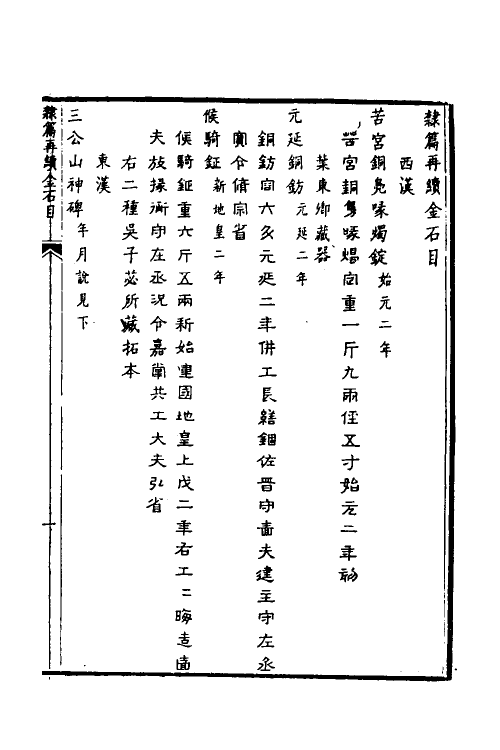 隸篇再續金石目
西漢
苦宮銅鳧喙燭錠始元二年
苦宮銅鳧喙燭定重一斤九兩徑五寸始元二年初
葉東卿藏器
元延銅鈁元延二年
銅鈁容六升元延二年供工長繕銅佐晋守嗇夫建主守左丞
賓令脩宗省
候騎鉦新地皇二年
候騎鉦重六斤五兩新始建國地皇上戊二年右工工晦造嗇
夫放掾衡守左丞況令嘉掌共工大夫弘省
右二種吳子苾所藏拓本
東漢
三公山神碑年月說見下
隸篇再續金石目
一